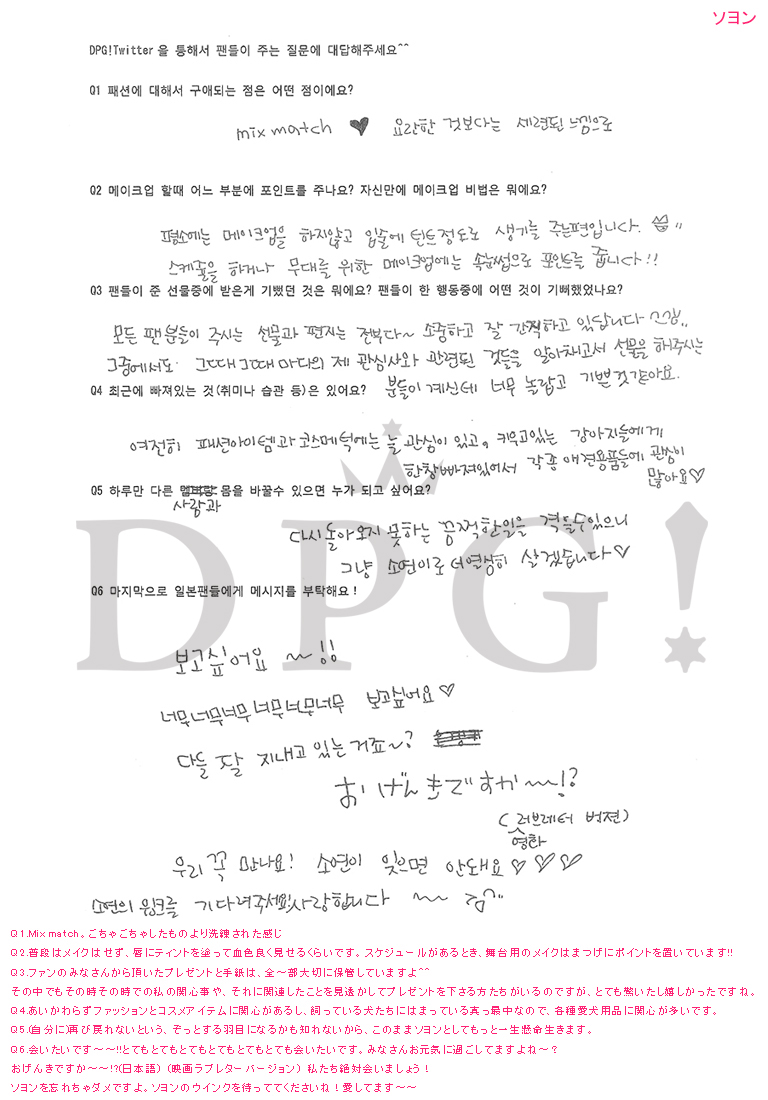 ソヨン
DPG!Twitter을 통해서 팬들이 주는 질문에 대답해주세요^^
Q1 패션에 대해서 구애되는 점은 어떤 점이에요?
mix match ♥ 요란한 것보다는 세련된 느낌으로
Q2 메이크업 할때 어느 부분에 포인트를 주나요? 자신만에 메이크업 비법은 뭐에요?
평소에는 메이크업을 하지않고 입술에 틴트정도로 생기를 주는편입니다.
스케줄을 하거나 무대를 위한 메이크업에는 속눈썹으로 포인트를 줍니다!!
Q3 팬들이 준 선물중에 받은게 기뻤던 것은 뭐에요? 팬들이 한 행동중에 어떤 것이 기뻐했었나요?
모든 팬분들이 주시는 선물과 편지는 전부다~ 소중하고 잘 간직하고 있답니다
그중에서도 그때그때마다의 제 관심사와 관련된 것들을 알아채고서 선물을 해주시는
분들이 계신데 너무 놀랍고 기쁜것같아요.
Q4 최근에 빠져있는 것(취미나 습관 등)은 있어요?
여전히 패션아이템과 코스메틱에는 늘 관심이 있고, 키우고있는 강아지들에게
한창빠져있어서 각종 애견용품들에 관심이
많아요♡
Q5 하루만 다른 몸을 바꿀수 있으면 누가 되고 싶어요?
사람과
다시 돌아오지 못하는 끔찍한일을 겪을수있으니
그냥 소연이로 더열심히 살겠습니다♡
DPG!
Q6 마지막으로 일본팬들에게 메시지를 부탁해요!
보고싶어요 ~!!
너무너무너무너무너무너무 보고싶어요♡
다들 잘 지내고 있는거죠~?
おげんきですか~~!?
(러브레터 버젼)
영화
우리 꼭 만나요! 소연이 잊으면 안돼요♡♡♡
소연의 윙크를 기다려주세요!사랑합니다 ~~
Q1.Mix match。ごちゃごちゃしたものより洗練された感じ
Q2.普段はメイクはせず、唇にティントを塗って血色良く見せるくらいです。スケジュールがあるとき、舞台用のメイクはまつげにポイントを置いています!!
Q3.ファンのみなさんから頂いたプレゼントと手紙は、全～部大切に保管していますよ^^
その中でもその時その時での私の関心事や、それに関連したことを見逃かしてプレゼントを下さる方たちがいるのですが、とても驚いたし嬉しかったですね。
Q4.あいかわらずファッションとコスメアイテムに関心があるし、飼っている犬たちにはまっている真っ最中なので、各種愛犬用品に関心が多いです。
Q5.(自分に)再び戻れないという、ぞっとする羽目になるかも知れないから、このままソヨンとしてもっと一生懸命生きます。
Q6.会いたいです～～!!とてもとてもとてもとてもとてもとても会いたいです。みなさんお元気に過ごしてますよね～?
おげんきですか～～!?(日本語) (映画ラブレターバージョン) 私たち絶対会いましょう!
ソヨンを忘れちゃダメですよ。ソヨンのウインクを待っててくださいね!愛してます～～